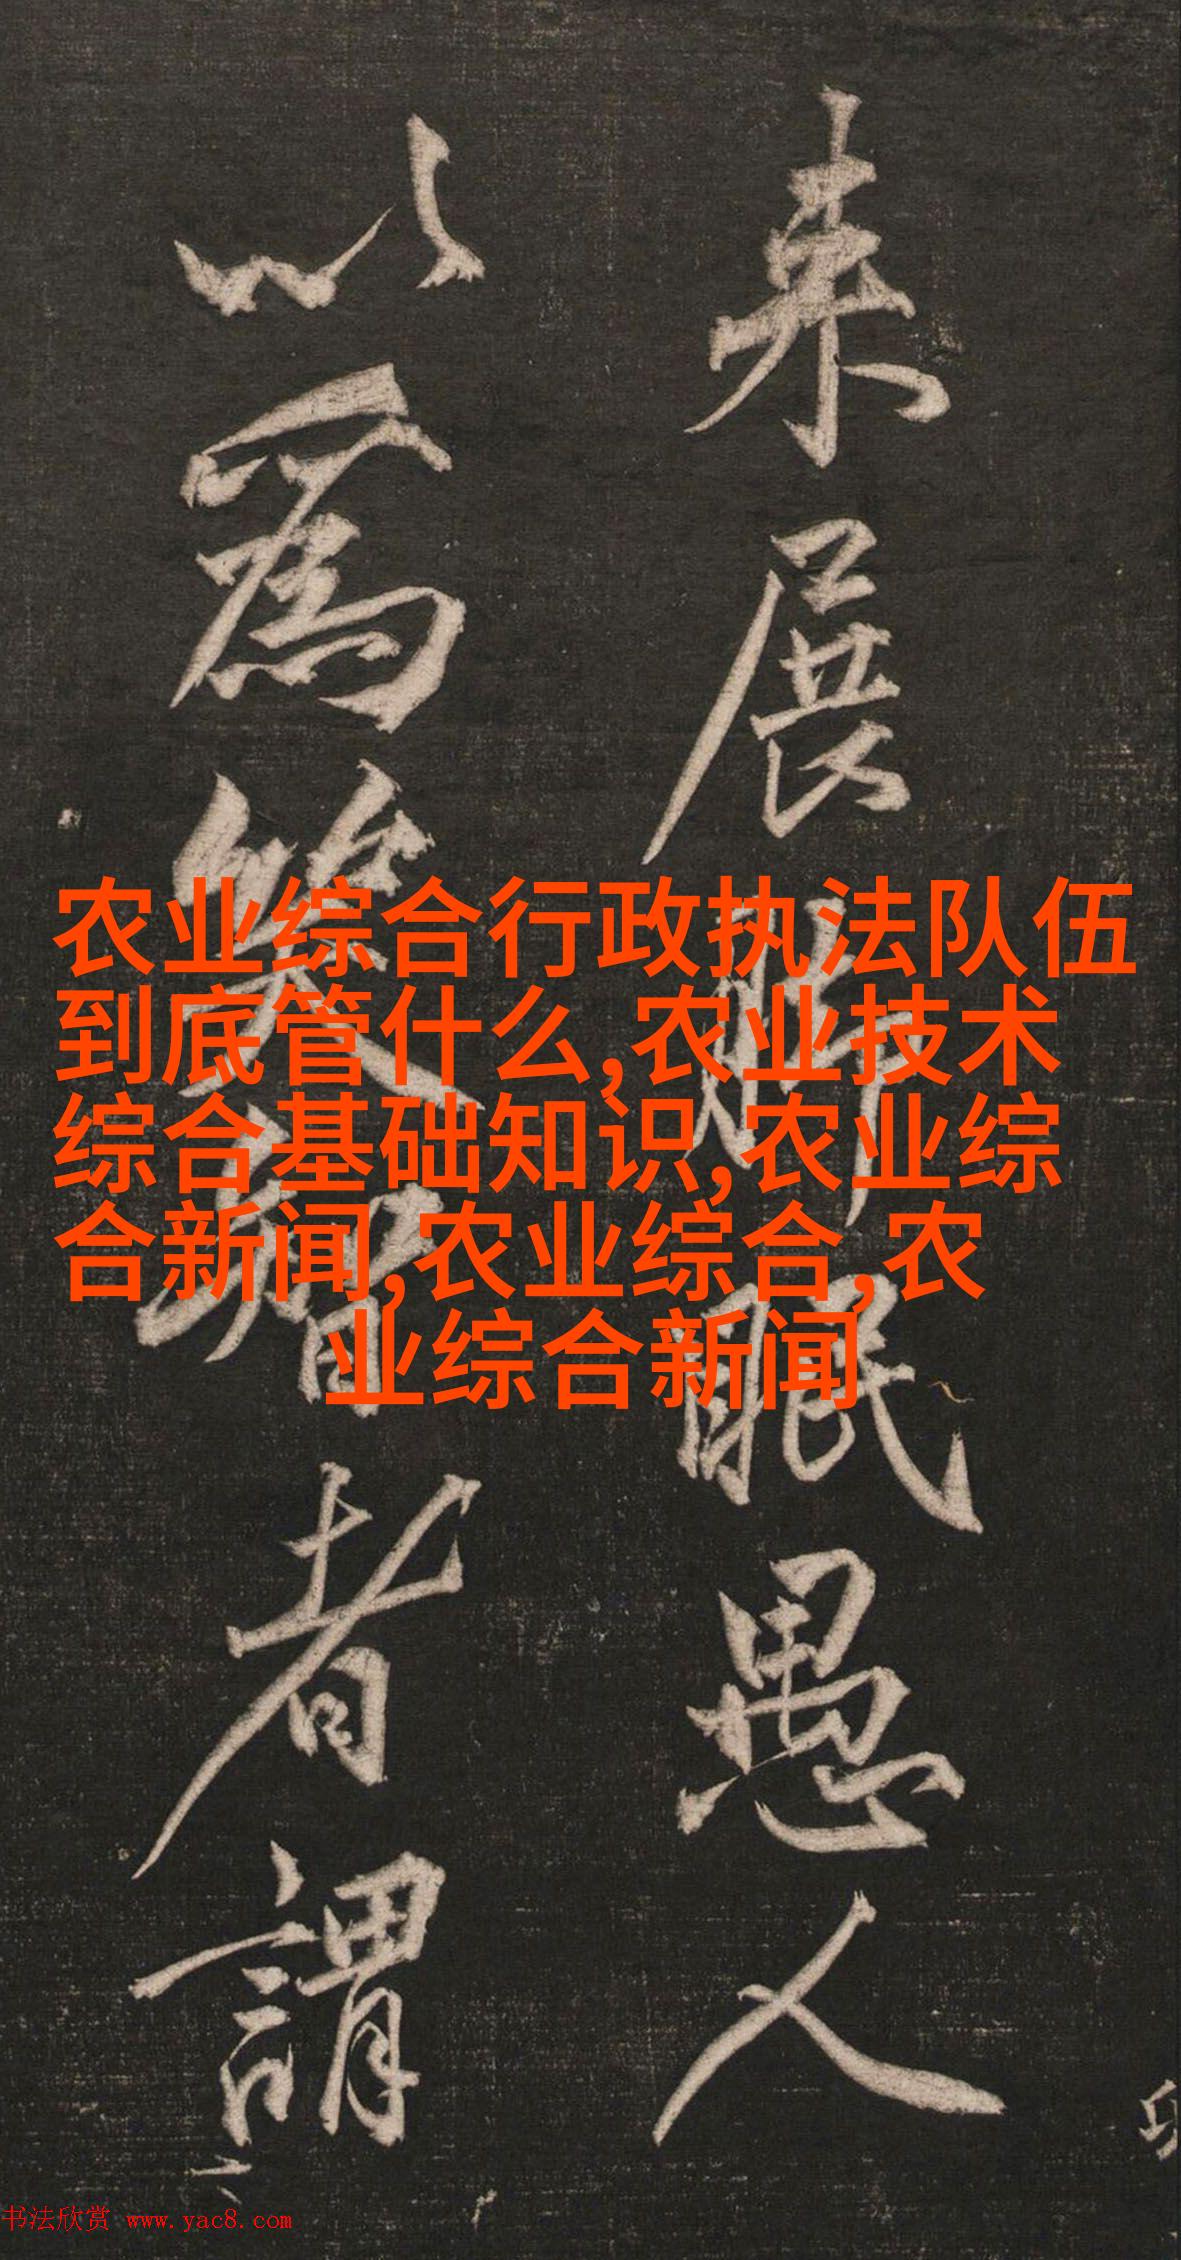 来展脚眠愚人
以為笑智者謂
农业综合行政执法队伍
到底管什么,农业技术
综合基础知识,农业综
合新闻,农业综合,农
业综合新闻
书法欣赏 www.yac8.com